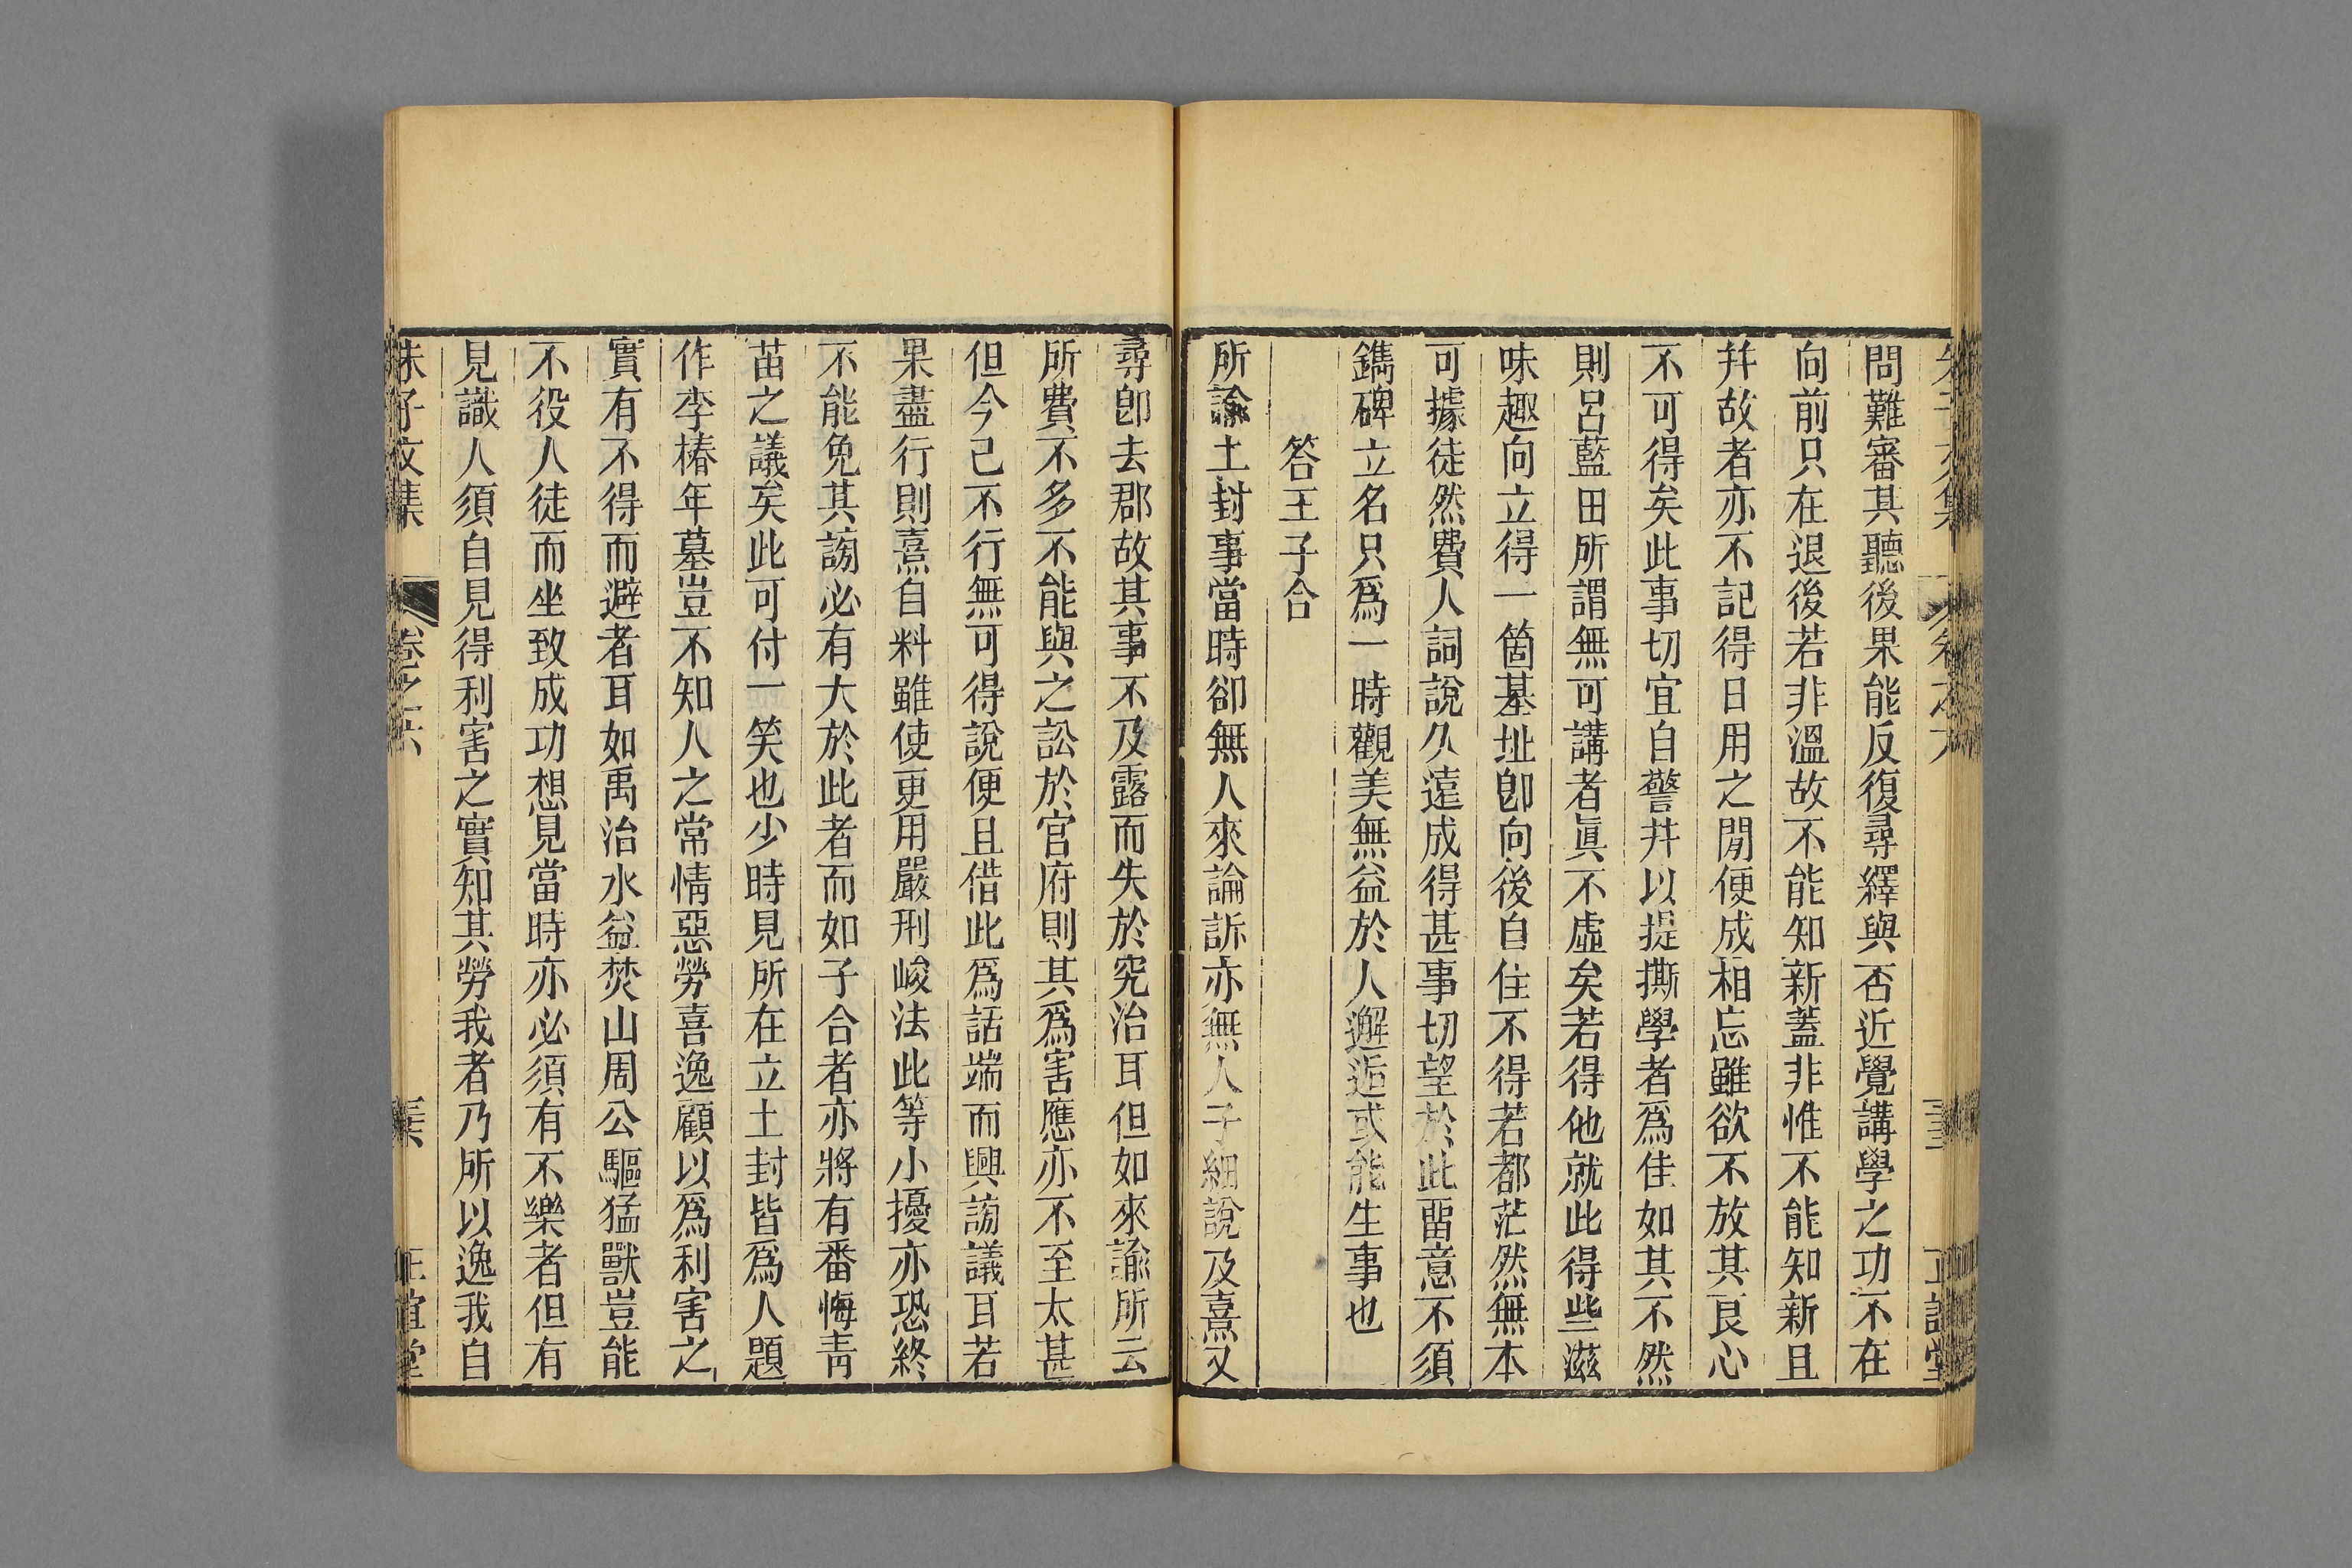 問難審其聽後果能反復尋繹與否近覺講學之功不在
向前只在退後若非溫故不能知新蓋非惟不能知新且
幷故者亦不記得日用之閒便成相忘雖欲不放其良心
不可得矣此事切宜自警幷以提撕學者爲佳如其不然
則呂藍田所謂無可講者眞不虛矣若得他就此得些滋
味趣向立得一箇基址卽向後自住不得若都茫然無本
可據徒然費人詞說久遠成得甚事切望於此畱意不須
鐫碑立名只爲一時觀美無益於人邂逅或能生事也
答王子合
所諭土封事當時卻無人來論訴亦無人子細說及熹又
尋卽去郡故其事不及露而失於究治耳但如來諭所云
所費不多不能與之訟於官府則其爲害應亦不至太甚
但今已不行無可得說便且借此爲話端而興謗議耳若
果盡行則熹自料雖使更用嚴刑峻法此等小擾亦恐終
不能免其謗必有大於此者而如子合者亦將有番悔靑
苗之議矣此可付一笑也少時見所在立土封皆爲人題
作李椿年墓豈不知人之常情惡勞喜逸顧以爲利害之
實有不得而避者耳如禹治水益焚山周公驅猛獸豈能
不役人徒而坐致成功想見當時亦必須有不樂者但有
見識人須自見得利害之實知其勞我者乃所以逸我自
朱子文集
卷之六
正誼堂